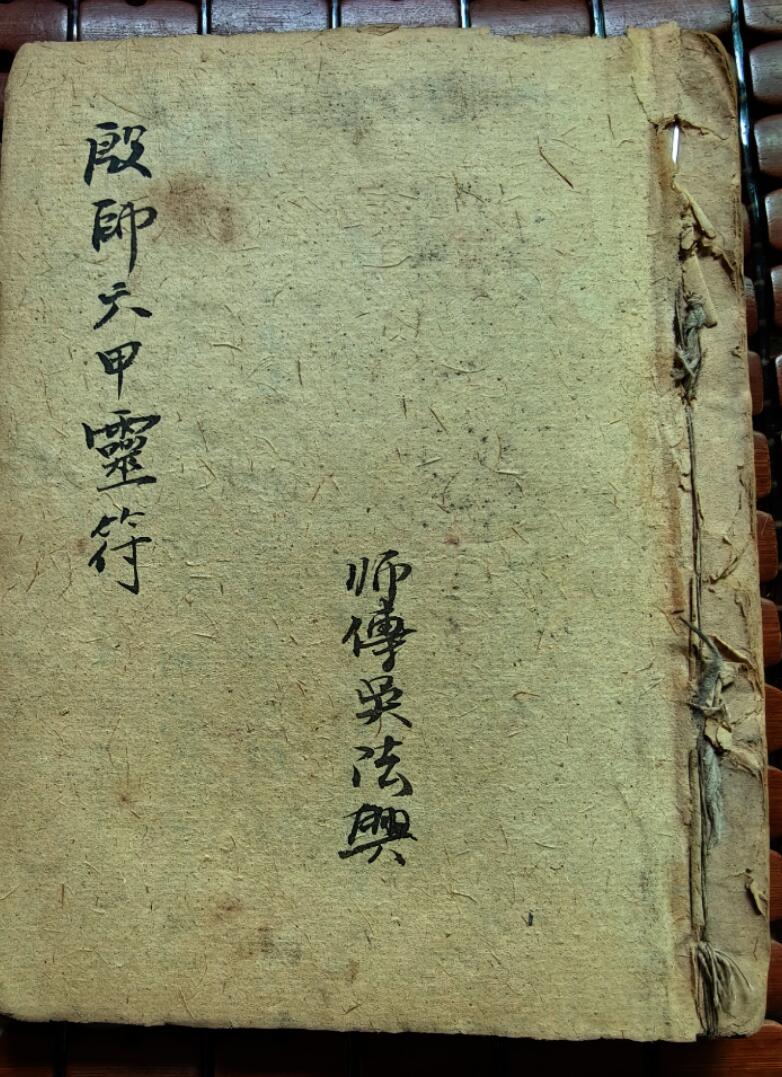 殷帥六甲靈符
师傳吳法興